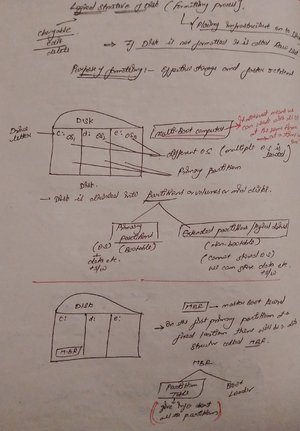 Logical structure of Disk (Formatting process).
Placing infrastructure on to
changable
→ If Disk is not formatted so is called
Purpose of formatting :- Effective storage and faster retrieval
DISK
Drive letter
C: OS1 d: OS2 E: OS3
Multi-Boot computer
different OS (multiple O.S is loaded)
Primary Partition
Disk.
- Disk is divided into Partitions or volumes or mini disks.
Primary Partition
(O.S) (Bootable)
data etc.
Extended partition/logical drives
(non bootable)
(cannot stored O.S)
we can store data etc.
DISK
C: d: e:
MBR
MBR → master boot record
→ In the first primary partition at a
fixed location there will be a
structure called MBR.
MBR
Partition Table
Boot Loader
(give info about all the partitions)